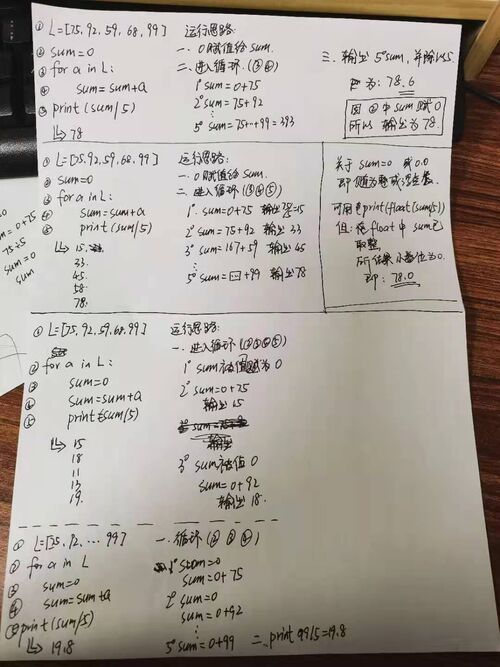 ① L=[75,92,59,68,99]
② sum=0
③ for a in L:
④ sum=sum+a
⑤ print(sum/5)
↳ 78
运行思路:
一. 0赋值给sum.
二. 进入循环.(③④)
1° sum=0+75
2° sum=75+92
⋮
5° sum=75+…+99=393
三. 输出 5° sum, 并除以5.
应为: 78.6
因②中sum赋0
所以 输出为78
① L=[75,92,59,68,99]
② sum=0
③ for a in L:
④ sum=sum+a
⑤ print(sum/5)
↳ 15.
33.
45.
58.
78.
运行思路:
一. 0赋值给sum.
二. 进入循环(③④⑤)
1°. sum=0+75 输出 =15
2° sum=75+92 输出 33
3° sum=167+59 输出 45
5° sum=…+99 输出 78
关于sum=0 或0.0
可用 print(float(sum/5))
但: 在float中sum已
取整
所以结果小数位为0.
即: 78.0
0+75
75÷5
sum=0
sum
① L=[75,92,59,68,99]
② for a in L:
③ sum=0
④ sum=sum+a
⑤ print(sum/5)
↳ 15
18
11
13
19.
运行思路:
一. 进入循环(②③④⑤)
1° sum被赋值为0
2° sum=0+75
输出 15
3° sum被值0
sum=0+92
输出 18.
① L=[75,92,…99]
② for a in L
③ sum=0
④ sum=sum+a
⑤ print(sum/5)
↳ 19.8
一. 循环(②③④)
1° sum=0
sum=0+75
2° sum=0
sum=0+92
⋮
5° sum=0+99
二. print 99/5=19.8